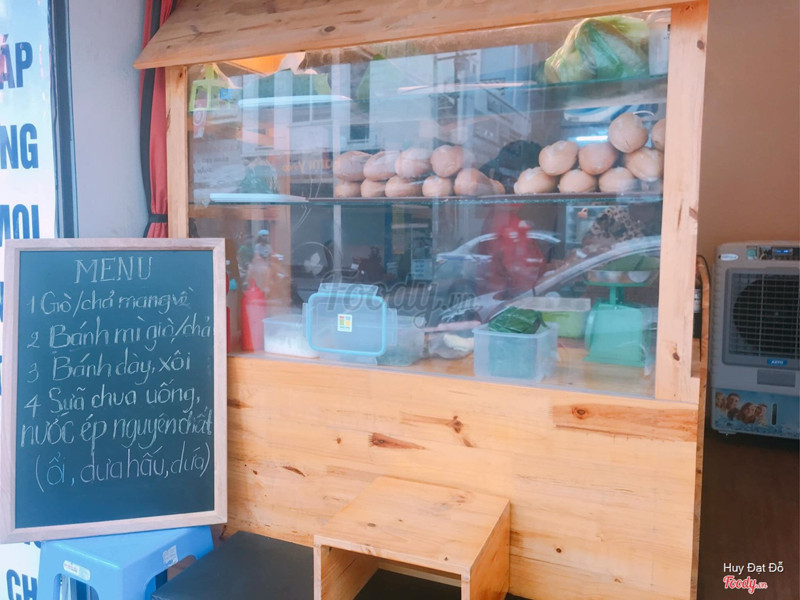 ÁP
NG
MỌI
MENU
1 Giò/chả mang về
2 Bánh mì giò/chả
3 Bánh dày, xôi
4 Sữa chua uống,
nước ép nguyên chất
(ổi, dưa hấu, dứa)
CH
Foody.vn
Huy Đạt Đỗ
Foody.vn